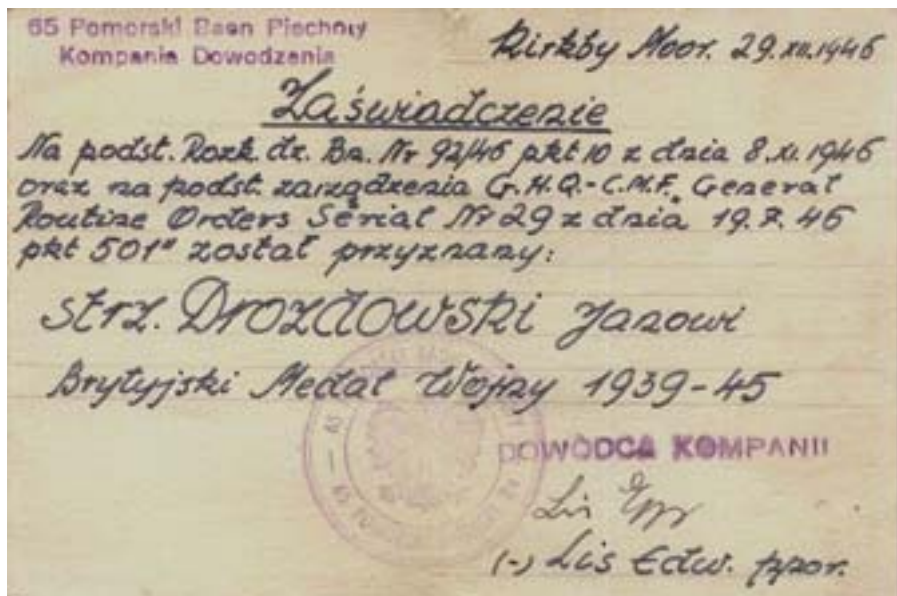 65 Pomorski Baon Piechoty
Kompania Dowodzenia
Kirkby Moor. 29.XII.1946
Zaświadczenie
Na podst. Rozk. dz. Ba. Nr 92/46 pkt 10 z dnia 8.XI.1946
oraz na podst. zarządzenia G.H.Q.-C.M.F. "General
Routine Orders Serial Nr 29 z dnia 19.7.46
pkt 501" został przyznany:
strz. Drozdowski Janowi
Brytyjski Medal Wojny 1939-45
DOWÓDCA KOMPANII
(-) Lis Edw. ppor.